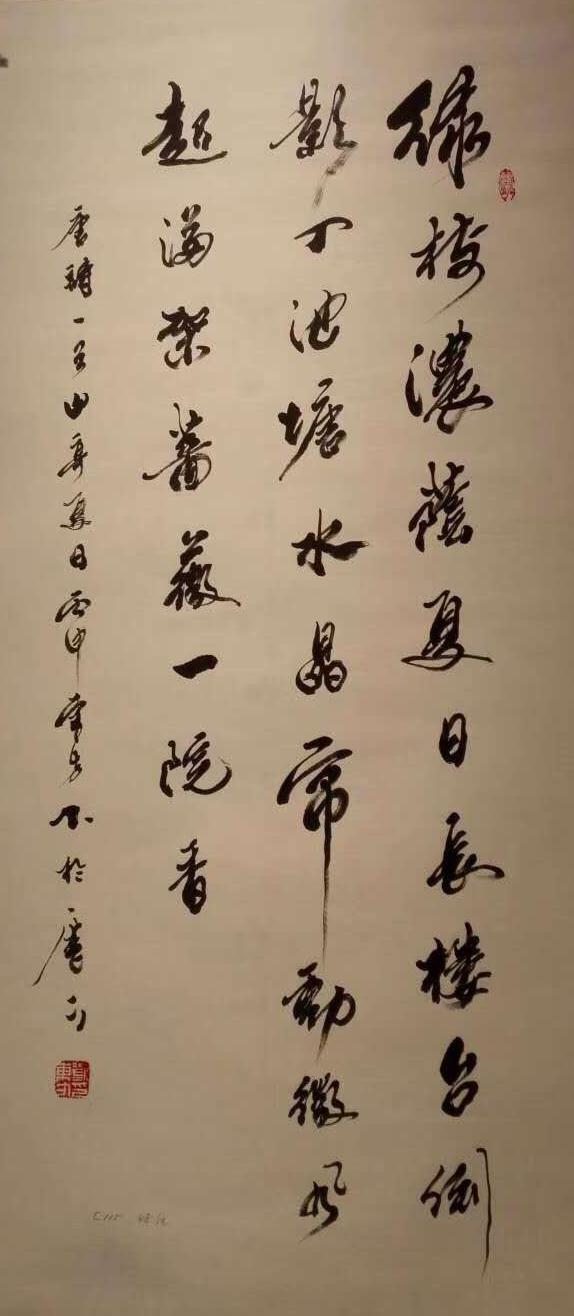 綠樹濃蔭夏日長樓台倒
影入池塘水晶帘動微風
起滿架薔薇一院香
唐詩一首山亭夏日丙申東方書於